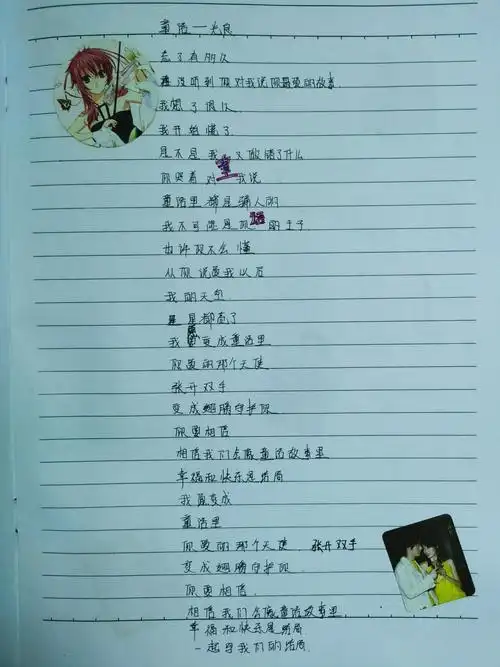 童话——光良
忘了有多久
再没听到你对我说你最爱的故事
我想了很久
我开始慌了
是不是我又做错了什么
你哭着对我说
童
童话里都是骗人的
我不可能是你的王子
话
也许你不会懂
从你说爱我以后
我的天空
星星都亮了
我愿变成童话里
你爱的那个天使
张开双手
变成翅膀守护你
你要相信
相信我们会像童话故事里
幸福和快乐是结局
我愿变成
童话里
你爱的那个天使 张开双手
变成翅膀守护你
你要相信
相信我们会像童话故事里
幸福和快乐是结局
一起写我们的结局